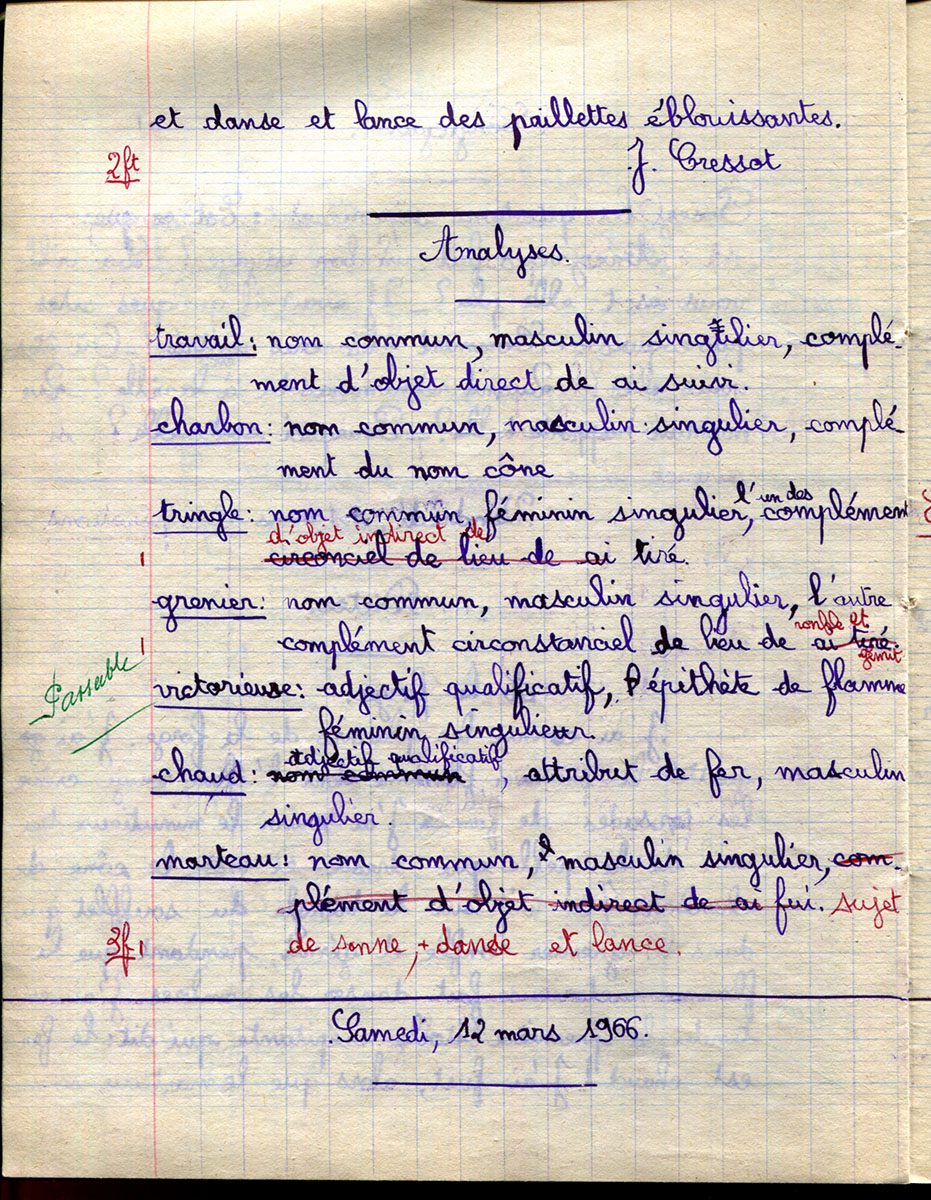 et danse et lance des paillettes éblouissantes.
2ft
J. Cressot
Analyses.
travail : nom commun, masculin singulier, complé-
ment d'objet direct de ai suivi.
charbon : nom commun, masculin singulier, complé
ment du nom cône
tringle : nom commun, féminin singulier, l'un des complément
d'objet indirect de
circonciel de lieu de ai tiré.
grenier : nom commun, masculin singulier, l'autre
ronfle et
complément circonstanciel de lieu de ai tiré.
gémit
Passable
victorieuse : adjectif qualificatif, épithète de flamme
féminin singulier.
adjectif qualificatif
chaud : nom commun, attribut de fer, masculin
singulier.
marteau : nom commun, masculin singulier, com-
plément d'objet indirect de ai fui. sujet
3f de sonne, + danse et lance.
Samedi, 12 mars 1966.